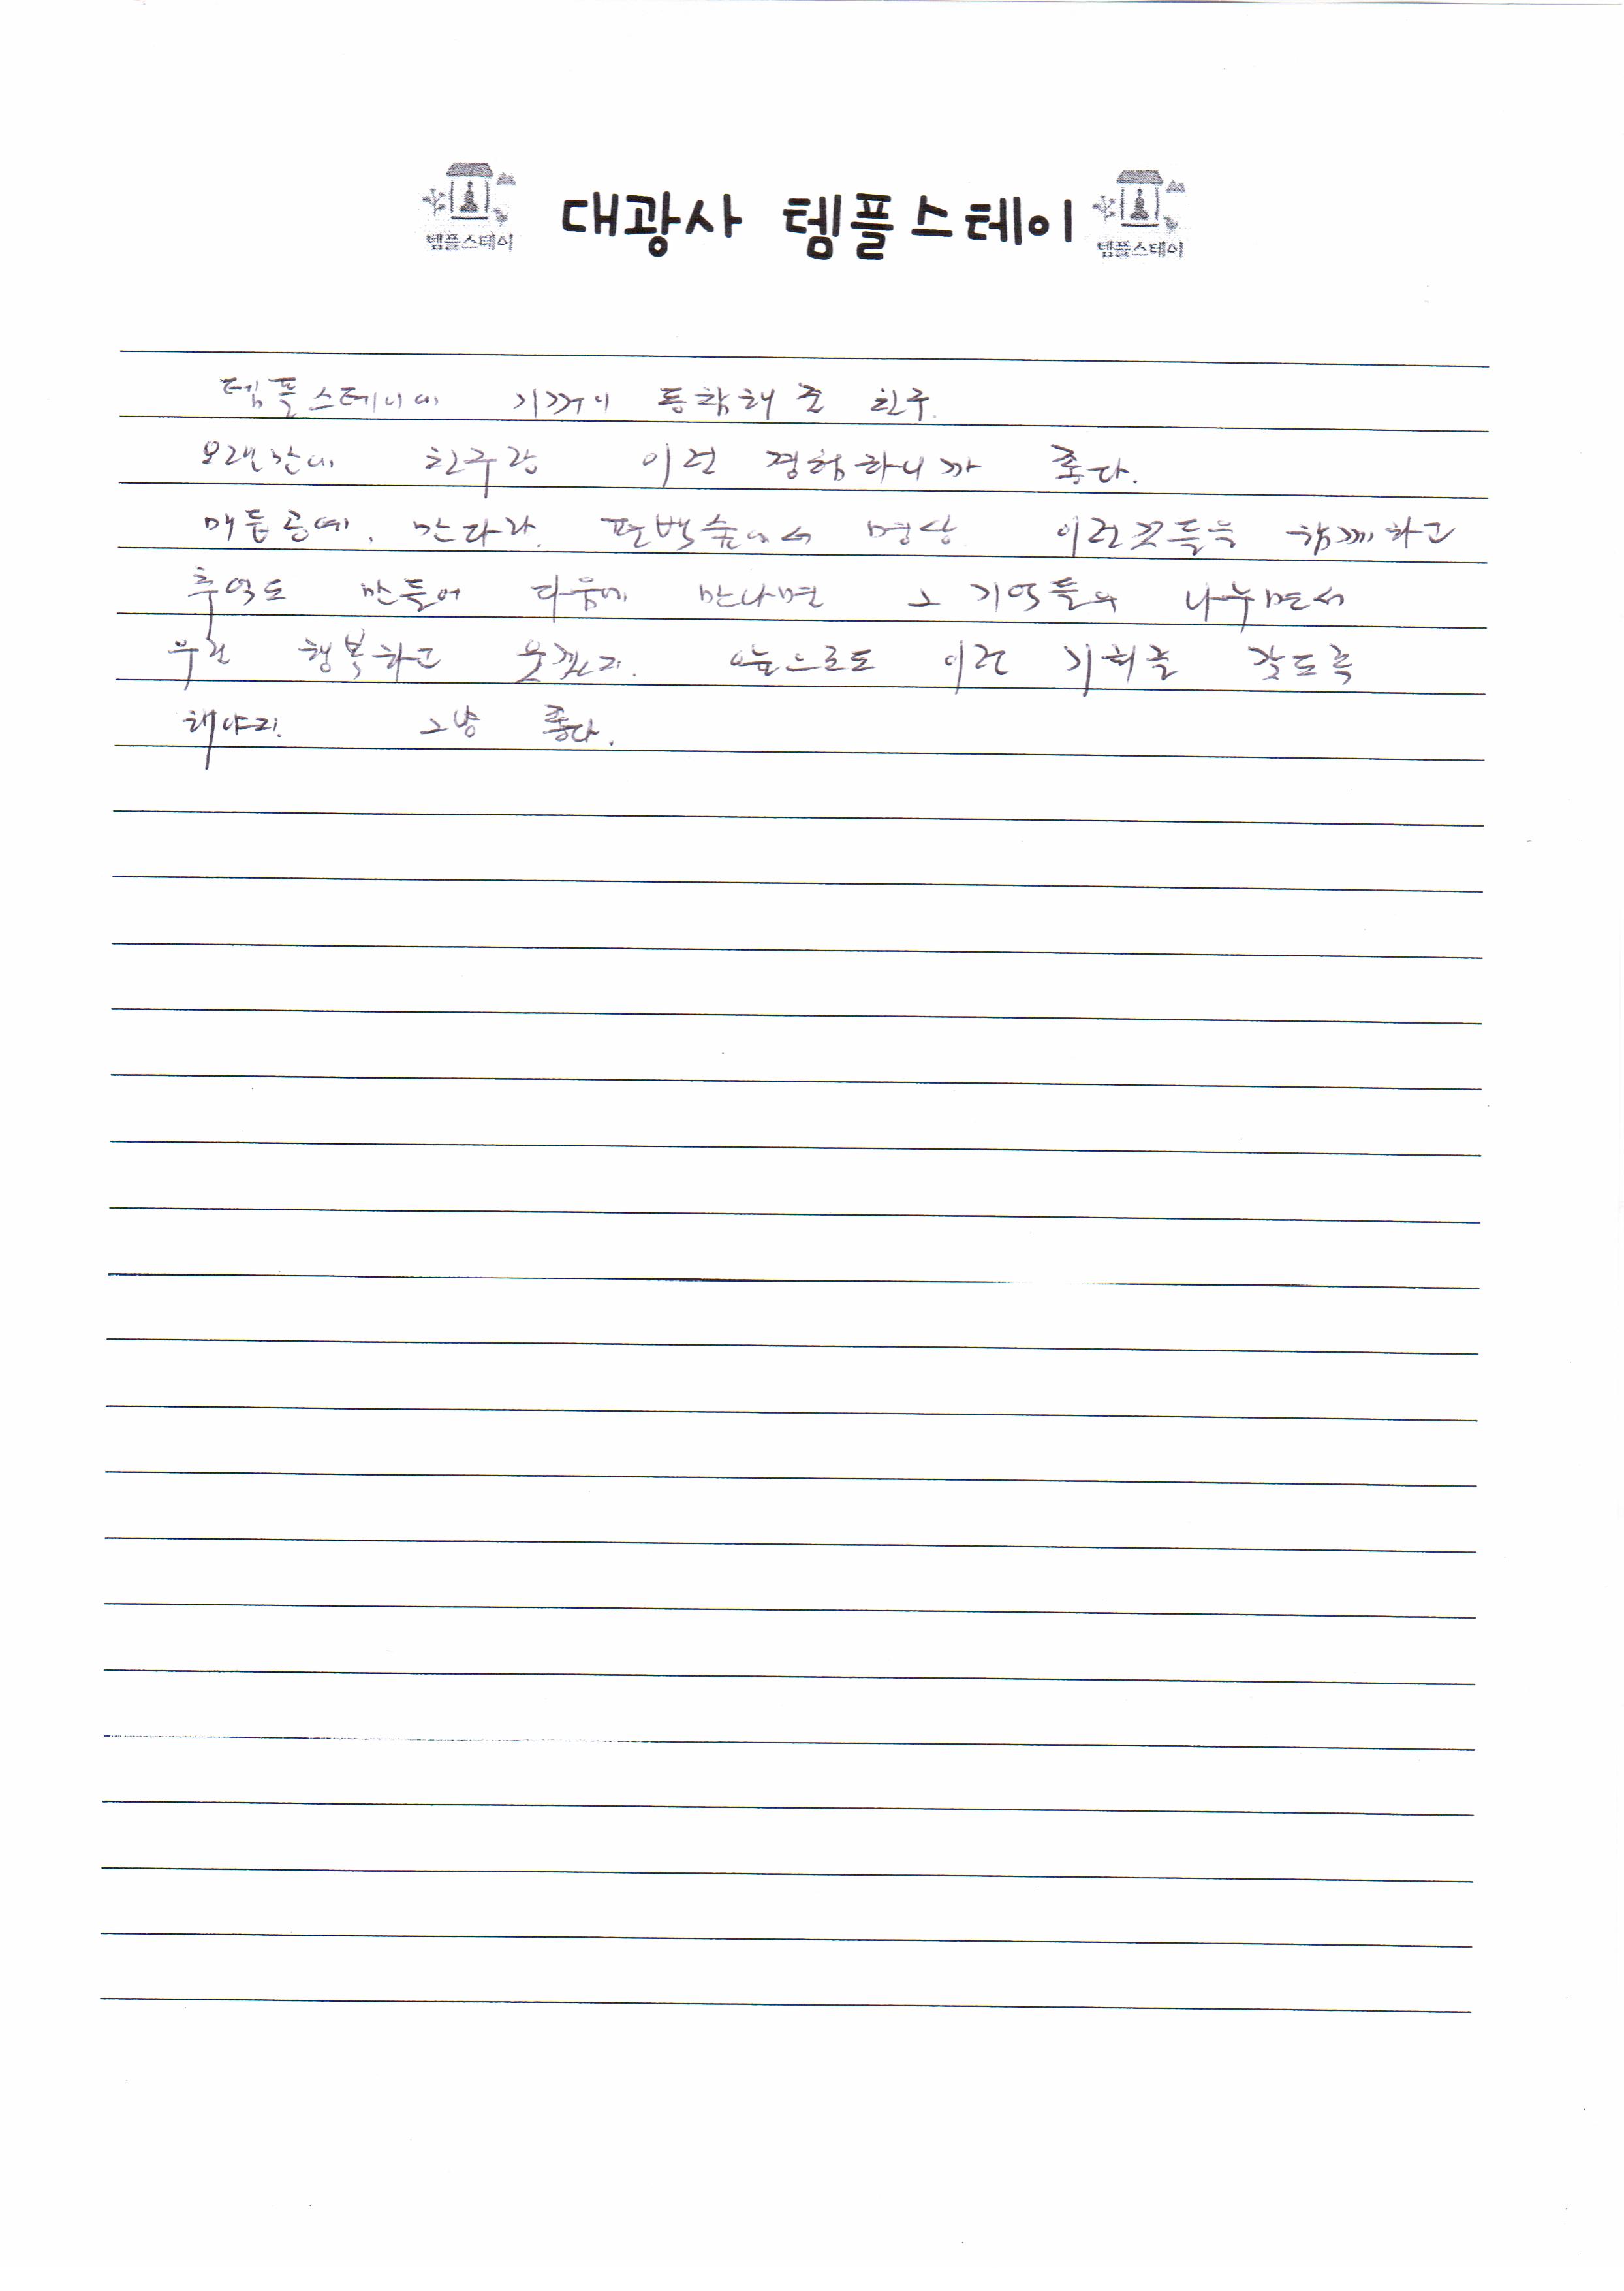 대광사 템플스테이
템플스테이
템플스테이
템플스테이에 기꺼이 동참해 준 친구.
오랜만에 친구랑 이런 경험하니까 좋다.
매듭공예, 만다라, 편백숲에서 명상 이런것들을 함께하고
추억도 만들어 다음에 만나면 그 기억들을 나누면서
우린 행복하고 웃겠지. 앞으로도 이런 기회를 갖도록
해야지. 그냥 좋다.